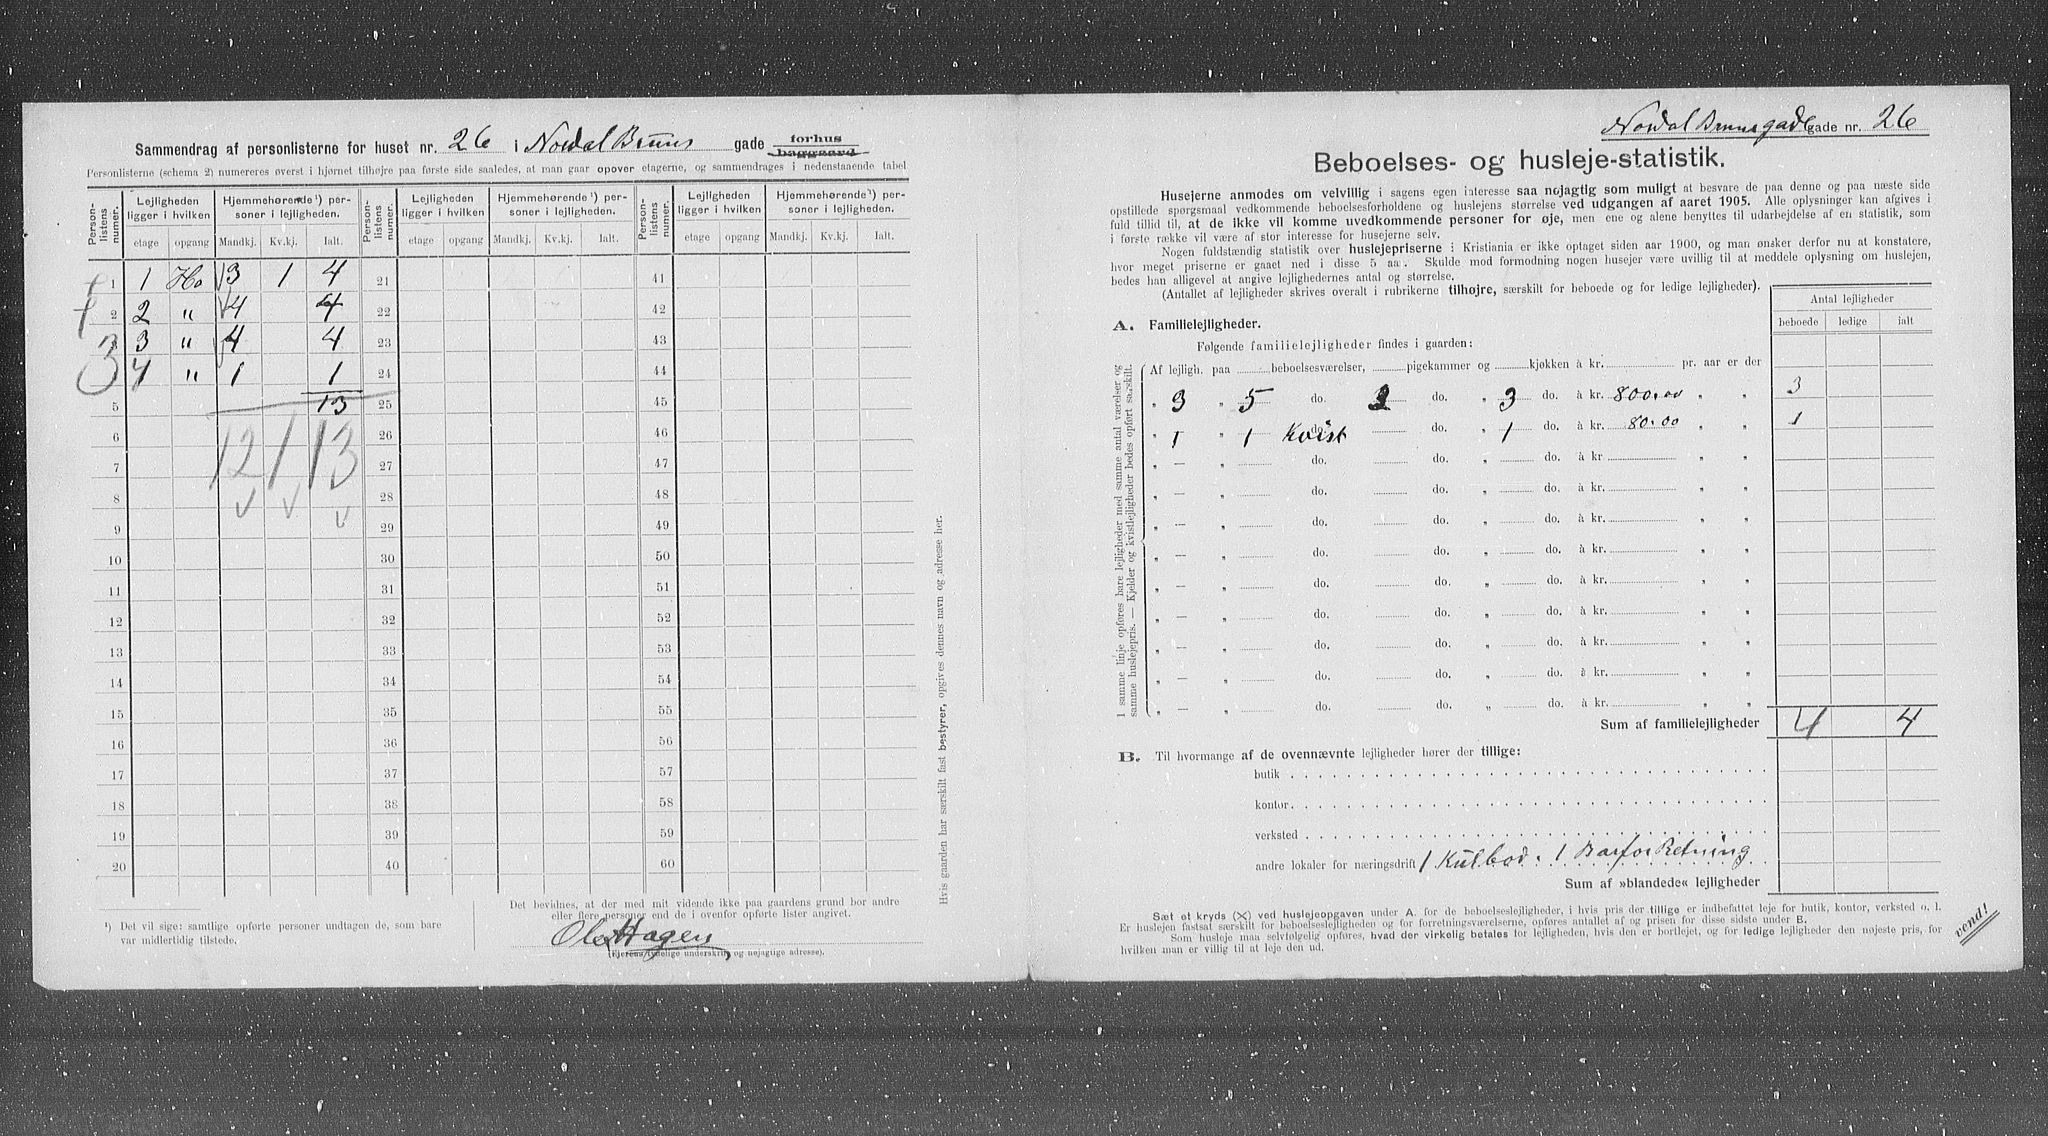 Sammendrag af personlisterne for huset nr. 26 i Nordal Bruns gade forhus baggaard
Personlisterne (schema 2) numereres øverst i hjørnet tilhøjre paa første side saaledes, at man gaar opover etagerne, og sammendrages i nedenstaaende tabel
Person-listens numer. Lejligheden ligger i hvilken Hjemmehørende ¹) personer i lejligheden. Person-listens numer. Lejligheden ligger i hvilken Hjemmehørende ¹) personer i lejligheden. Person-listens numer. Lejligheden ligger i hvilken Hjemmehørende ¹) personer i lejligheden.
etage opgang Mandkj. Kv.kj. Ialt. etage opgang Mandkj. Kv.kj. Ialt. etage opgang Mandkj. Kv.kj. Ialt.
1 1 Ho 3 1 4 21 41
2 2 " 4 4 22 42
3 3 " 4 4 23 43
4 " 1 1 24 44
5 13 25 45
6 12 1 13 26 46
7 27 47
8 28 48
9 29 49
10 30 50
11 31 51
12 32 52
13 33 53
14 34 54
15 35 55
16 36 56
17 37 57
18 38 58
19 39 59
20 40 60
¹) Det vil sige: samtlige opførte personer undtagen de, som bare
var midlertidig tilstede.
Det bevidnes, at der med mit vidende ikke paa gaardens grund bor andre
eller flere personer end de i ovenfor opførte lister angivet.
Ole Hagen
(Ejerens tydelige underskrift og nøjagtige adresse).
Hvis gaarden har særskilt fast bestyrer, opgives dennes navn og adresse her.
Nordal Brunsgade gade nr. 26
Beboelses- og husleje-statistik.
Husejerne anmodes om velvillig i sagens egen interesse saa nøjagtig som muligt at besvare de paa denne og paa næste side
opstillede spørgsmaal vedkommende beboelsesforholdene og huslejens størrelse ved udgangen af aaret 1905. Alle oplysninger kan afgives i
fuld tillid til, at de ikke vil komme uvedkommende personer for øje, men ene og alene benyttes til udarbejdelse af en statistik, som
i første række vil være af stor interesse for husejerne selv.
Nogen fuldstændig statistik over huslejepriserne i Kristiania er ikke optaget siden aar 1900, og man ønsker derfor nu at konstatere,
hvor meget priserne er gaaet ned i disse 5 aar. Skulde mod formodning nogen husejer være uvillig til at meddele oplysning om huslejen,
bedes han alligevel at angive lejlighedernes antal og størrelse.
(Antallet af lejligheder skrives overalt i rubrikerne tilhøjre, særskilt for beboede og for ledige lejligheder).
Antal lejligheder
beboede ledige ialt
A. Familielejligheder.
Følgende familielejligheder findes i gaarden:
Af lejligh. paa beboelsesværelser, pigekammer og kjøkken à kr. pr. aar er der
" 3 " 5 do. do. " 3 do. à kr. 800.00 " " 3
" 1 " 1 Kvist do. do. " 1 do. à kr. 80.00 " " 1
" — " do. do. " do. à kr. " "
" — " do. do. " do. à kr. " "
" — " do. do. " do. à kr. " "
" — " do. do. " do. à kr. " "
" — " do. do. " do. à kr. " "
" — " do. do. " do. à kr. " "
" — " do. do. " do. à kr. " "
" — " do. do. " do. à kr. " "
" — " do. do. " do. à kr. " "
I samme linje opføres bare lejligheder med samme antal værelser og
samme huslejepris. — Kjelder og kvistlejligheder bedes opført særskilt.
Sum af familielejligheder 4 4
B. Til hvormange af de ovennævnte lejligheder hører der tillige:
butik
kontor
verksted
andre lokaler for næringsdrift 1 Kulbod. 1 Barforretning
Sum af »blandede« lejligheder
Sæt et kryds (X) ved huslejeopgaven under A. for de beboelseslejligheder, i hvis pris der tillige er indbefattet leje for butik, kontor, verksted o. l.
Er huslejen fastsat særskilt for beboelseslejligheden og for forretningsværelserne, opføres antallet af og prisen for disse sidste under B.
Som husleje maa selvfølgelig opføres, hvad der virkelig betales for lejligheden, hvis den er bortlejet, og for ledige lejligheder den nøjeste pris, for
hvilken man er villig til at leje den ud.
vend!